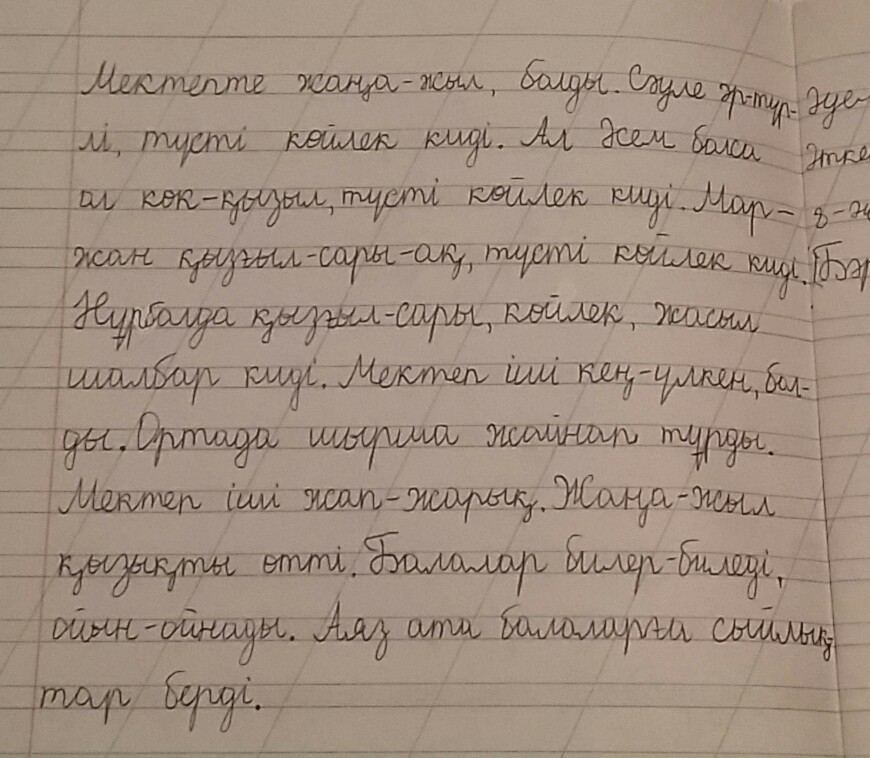 Мектепте жаңа-жыл, болды. Сәуле әр-түр-
лі, түсті көйлек киді. Ал Әсем болса
ал көк-қызыл, түсті көйлек киді. Мар-
жан қызғыл-сары-ақ, түсті көйлек киді.
Нұрбалда қызғыл-сары, көйлек, жасыл
шалбар киді. Мектеп іші кең-үлкен, бол-
ды. Ортада шырша жайнап тұрды.
Мектеп іші жап-жарық. Жаңа-жыл
қызықты өтті. Балалар билер-биледі,
ойын-ойнады. Аяз ата балаларға сыйлық
тар берді.